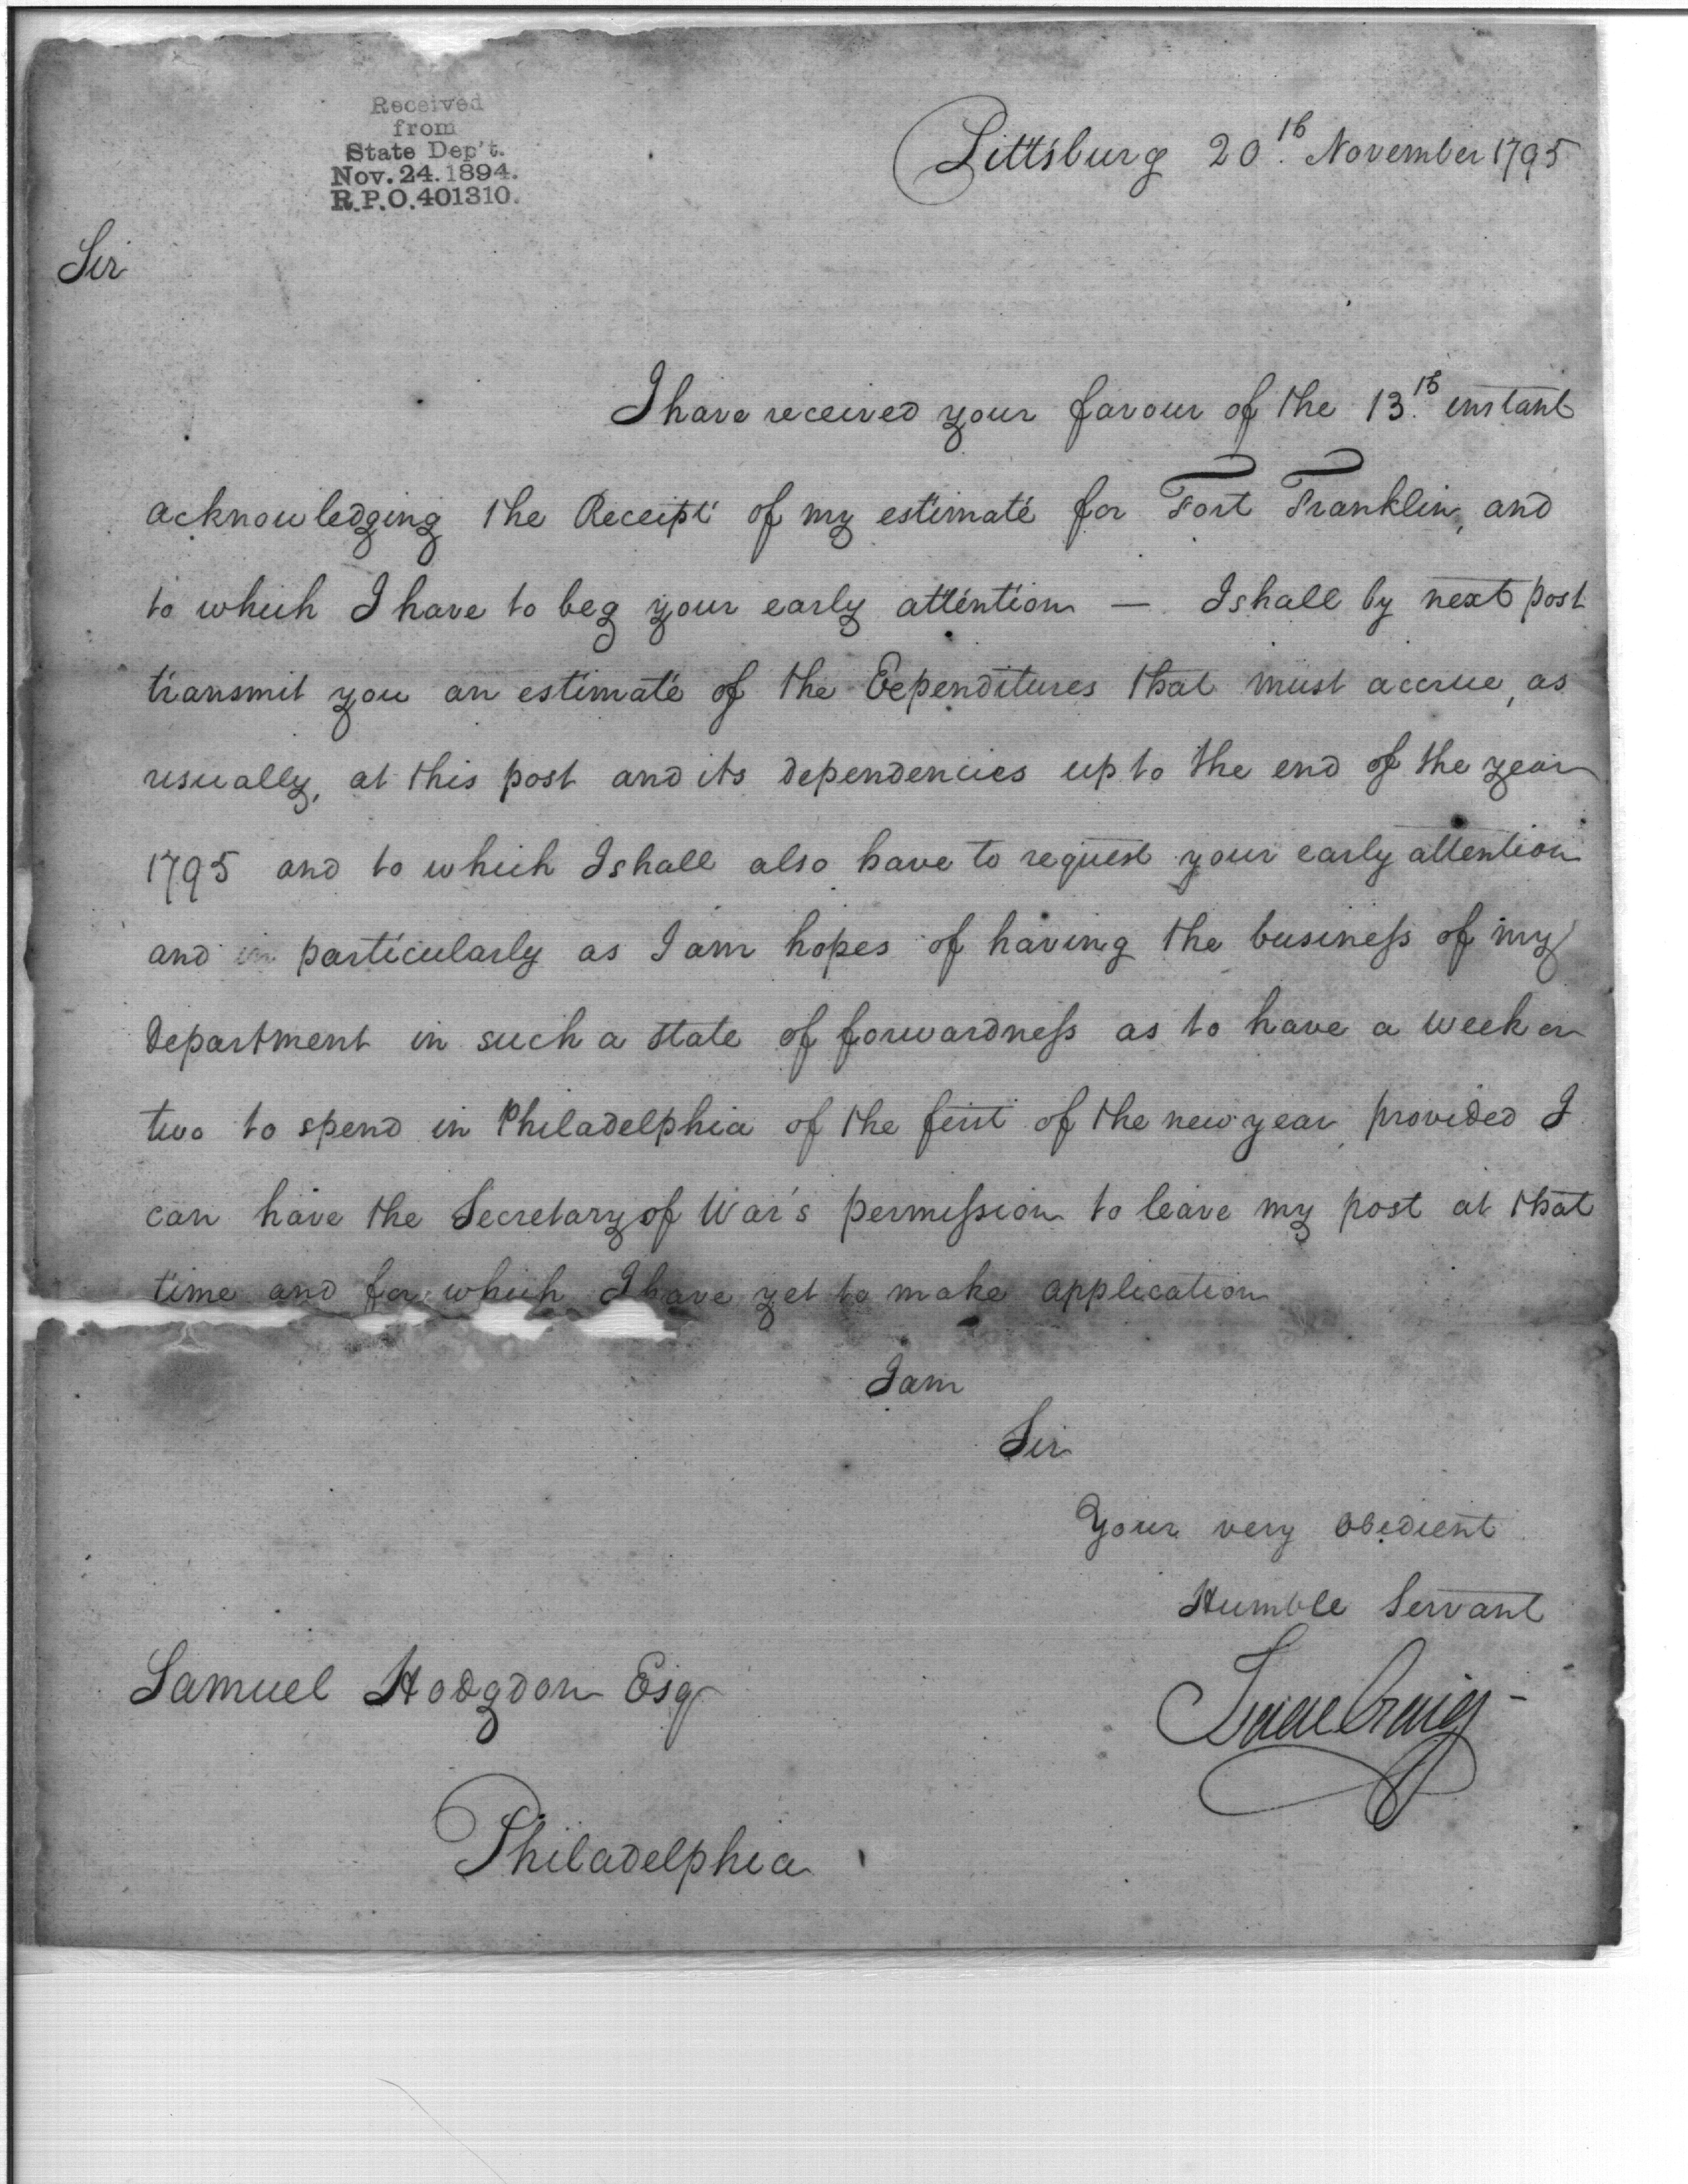 Received
from
State Dep't.
Nov. 24. 1894.
R.P.O. 401310.
Pittsburg 20th. November 1795
Sir
I have received your favour of the 13th. instant
acknowledging the Receipt of my estimate for Fort Franklin, and
to which I have to beg your early attention — I shall by next post
transmit you an estimate of the Expenditures that must accrue, as
usually, at this post and its dependencies up to the end of the year
1795 and to which I shall also have to request your early attention
and in particularly as I am hopes of having the business of my
department in such a state of forwardness as to have a week or
two to spend in Philadelphia of the first of the new year, provided I
can have the Secretary of War's permission to leave my post at that
time and for which I have yet to make application
I am
Sir
Your very obedient
Humble Servant
Isaac Craig
Samuel Hodgdon Esqr
Philadelphia